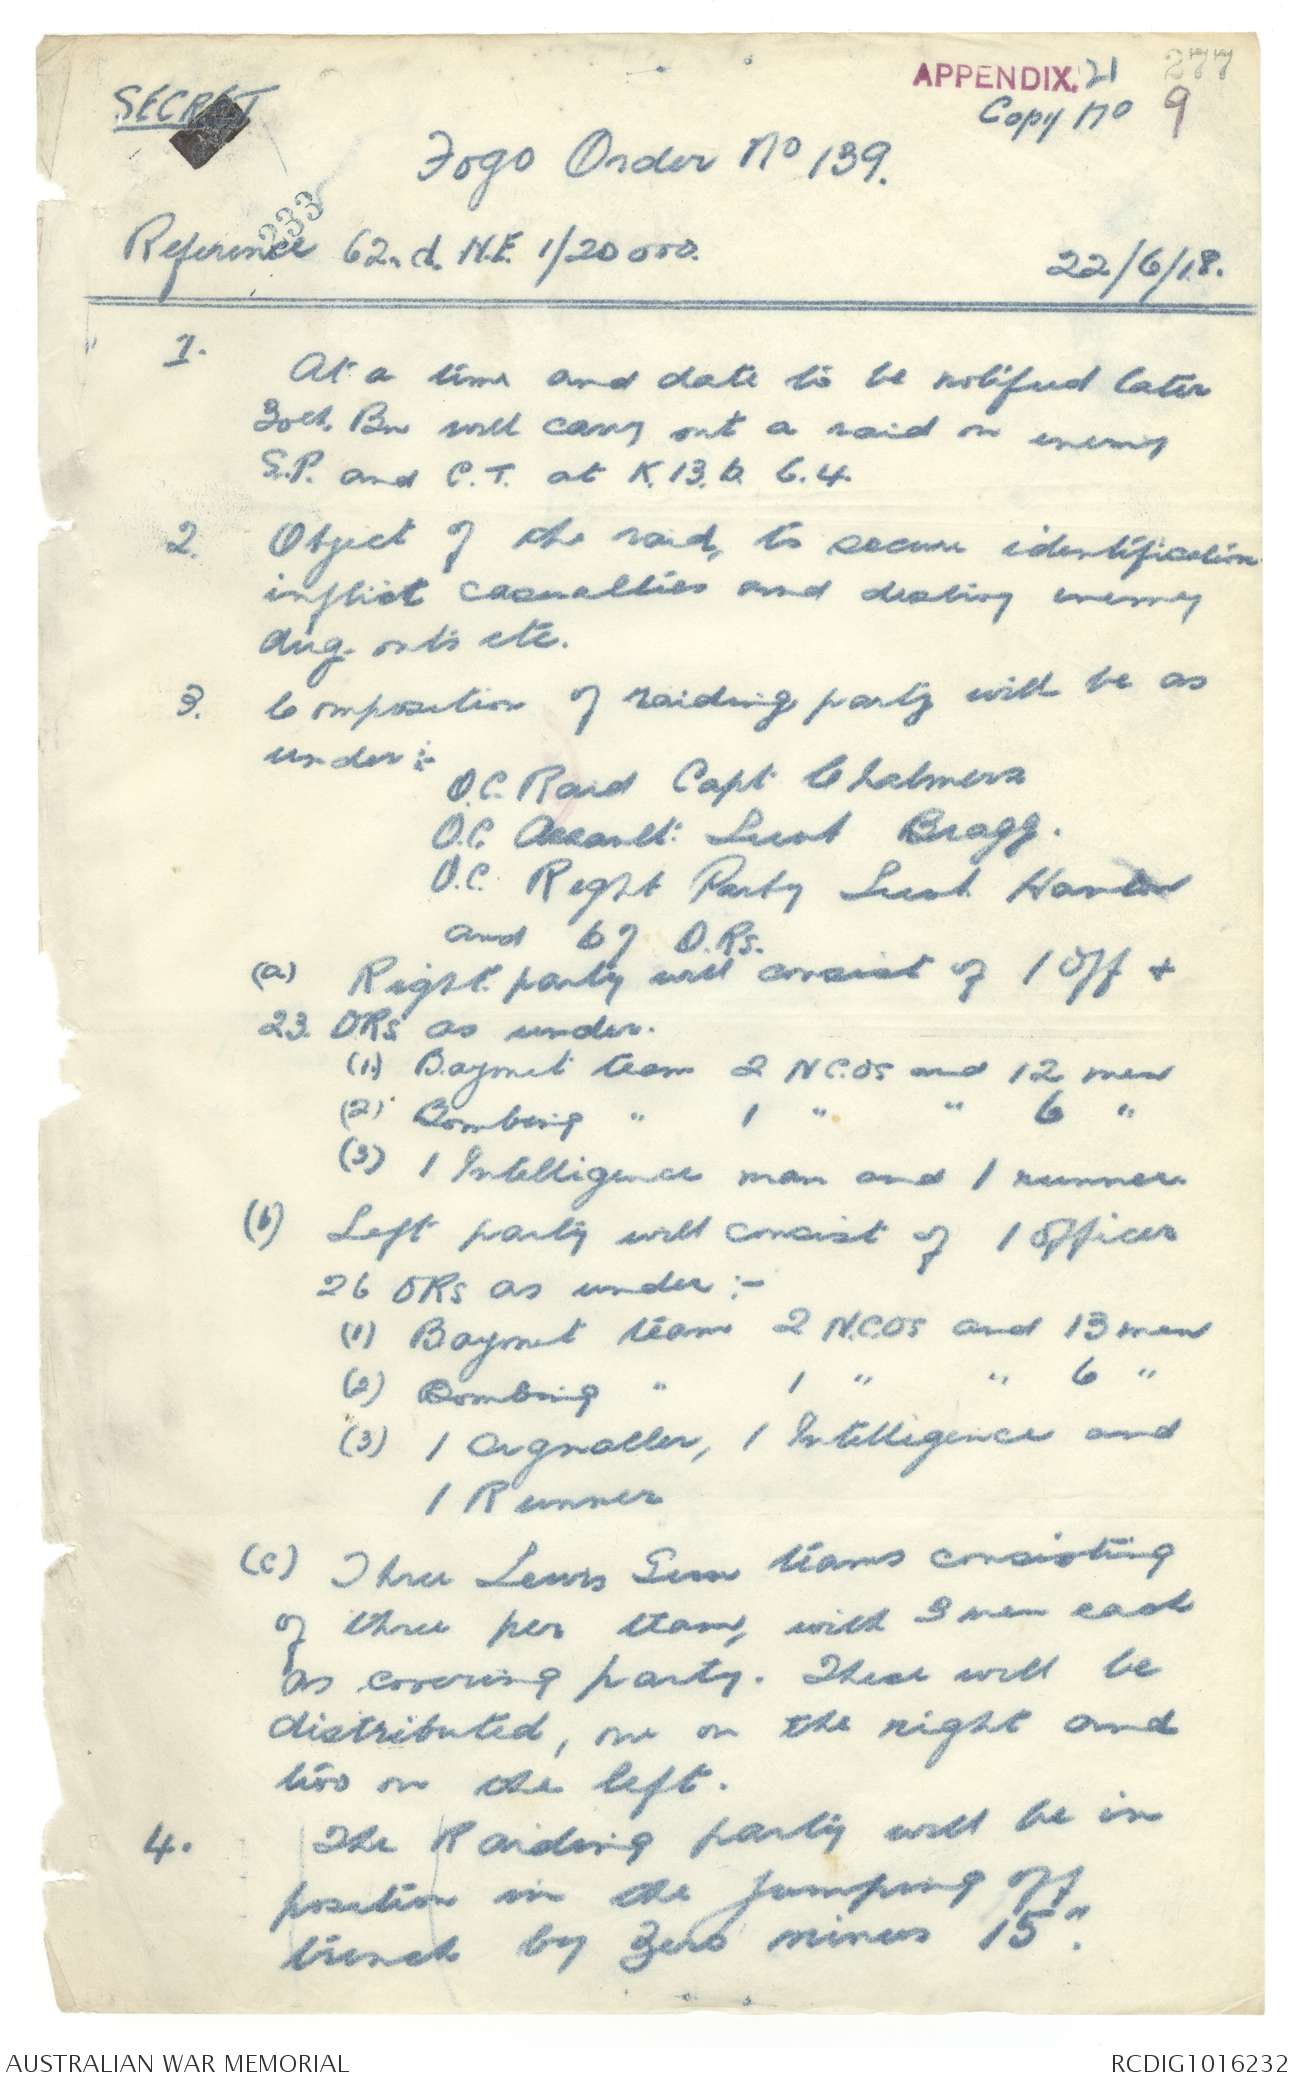 277
APPENDIX. 21
SECRET
Copy No 9
Fogo Order No 139.
233
Reference 62.d. N.E. 1/20000.
22/6/18.
1. At a time and date to be notified later
30th. Bn will carry out a raid on enemy
S.P. and C.T. at K.13.b. 6.4.
2. Object of the raid, to secure identification
inflict casualties and destroy enemy
dug-outs etc.
3. Composition of raiding party will be as
under:-
O.C. Raid Capt Chalmers
O.C. Assault: Lieut Bragg.
O.C. Right Party Lieut
and 67 O.Rs.
(a) Right party will consist of 1 Off +
23. ORs as under.
(1.) Bayonet team 2 NCOs and 12 men
(2) Bombing " 1 " " 6 "
(3) 1 Intelligence man and 1 runner.
(b) Left party will consist of 1 Officer
26 ORs as under:-
(1) Bayonet team 2 N.COs and 13 men
(2) Bombing " 1 " " 6 "
(3) 1 Signaller, 1 Intelligence and
1 Runner
(c) Three Lewis Gun teams consisting
of three per team, with 3 men each
as covering party. These will be
distributed, one on the right and
two on the left.
4. The Raiding party will be in
position in the jumping off
trench by Zero minus 15".
AUSTRALIAN WAR MEMORIAL
RCDIG1016232